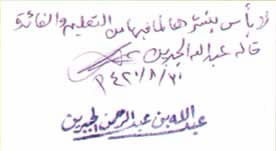 لا بأس بنشرها لما فيها من التعليم والفائدة
قاله عبد الله الجبرين
١٤٢٠/٨/٢٠هـ
عبدالله بن عبدالرحمن الجبرين